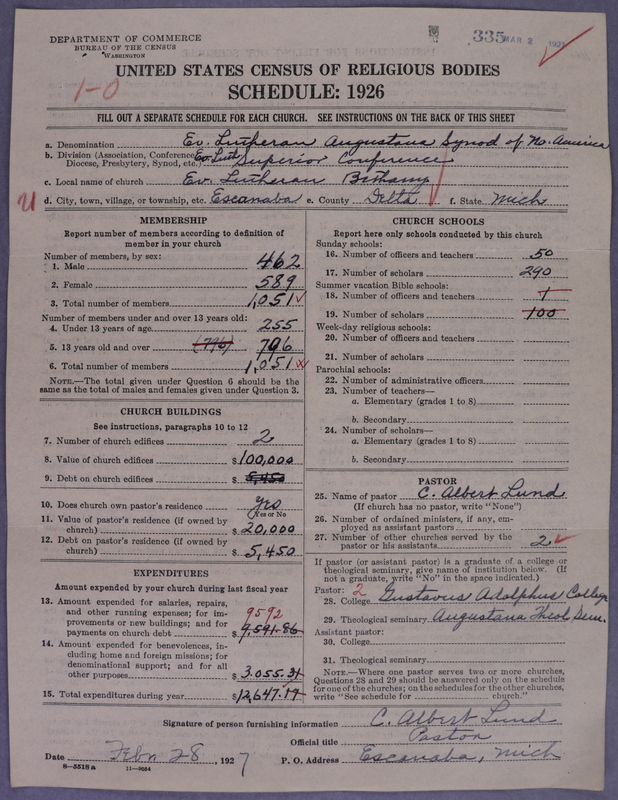 DEPARTMENT OF COMMERCE
BUREAU OF THE CENSUS
WASHINGTON
335 MAR 2 1927
1-0
UNITED STATES CENSUS OF RELIGIOUS BODIES
SCHEDULE: 1926
FILL OUT A SEPARATE SCHEDULE FOR EACH CHURCH. SEE INSTRUCTIONS ON THE BACK OF THIS SHEET
a. Denomination Ev. Lutheran Augustana Synod of No. America
b. Division (Association, Conference, Ev. Luth. Superior Conference
Diocese, Presbytery, Synod, etc.)
c. Local name of church Ev. Lutheran Bethany
d. City, town, village, or township, etc. Escanaba e. County Delta f. State Mich
MEMBERSHIP
Report number of members according to definition of
member in your church
Number of members, by sex:
1. Male 462
2. Female 589
3. Total number of members 1,051
Number of members under and over 13 years old:
4. Under 13 years of age 255
5. 13 years old and over (796) 796
6. Total number of members 1,051
NOTE.—The total given under Question 6 should be
same as the total of males and females given under Question 3.
CHURCH BUILDINGS
See instructions, paragraphs 10 to 12
7. Number of church edifices 2
8. Value of church edifices $100,000
9. Debt on church edifices $ 5,450
10. Does church own pastor's residence yes
Yes or No
11. Value of pastor's residence (if owned by
church) $ 20,000
12. Debt on pastor's residence (if owned by
church) $ 5,450
EXPENDITURES
Amount expended by your church during last fiscal year
13. Amount expended for salaries, repairs,
and other running expenses; for im-
provements or new buildings; and for 9592
payments on church debt $ 9,591.86
14. Amount expended for benevolences, in-
cluding home and foreign missions; for
denominational support; and for all
other purposes $ 3,055.31
15. Total expenditures during year $12,647.17
CHURCH SCHOOLS
Report here only schools conducted by this church
Sunday schools:
16. Number of officers and teachers 50
17. Number of scholars 290
Summer vacation Bible schools:
18. Number of officers and teachers 1
19. Number of scholars 100
Week-day religious schools:
20. Number of officers and teachers
21. Number of scholars
Parochial schools:
22. Number of administrative officers
23. Number of teachers—
a. Elementary (grades 1 to 8)
b. Secondary
24. Number of scholars—
a. Elementary (grades 1 to 8)
b. Secondary
PASTOR
25. Name of pastor C. Albert Lund
(If church has no pastor, write "None")
26. Number of ordained ministers, if any, em-
ployed as assistant pastors
27. Number of other churches served by the
pastor or his assistants 2
If pastor (or assistant pastor) is a graduate of a college or
theological seminary, give name of institution below. (If
not a graduate, write "No" in the space indicated.)
Pastor: 2
28. College Gustavus Adolphus College
29. Theological seminary Augustana Theol Sem.
Assistant pastor:
30. College
31. Theological seminary
NOTE.—Where one pastor serves two or more churches,
Questions 28 and 29 should be answered only on the schedule
for one of the churches; on the schedules for the other churches,
write "See schedule for church."
Signature of person furnishing information C. Albert Lund
Official title Pastor
Date Febr 28, 1927 P. O. Address Escanaba, Mich
8—5518 a 11—9664